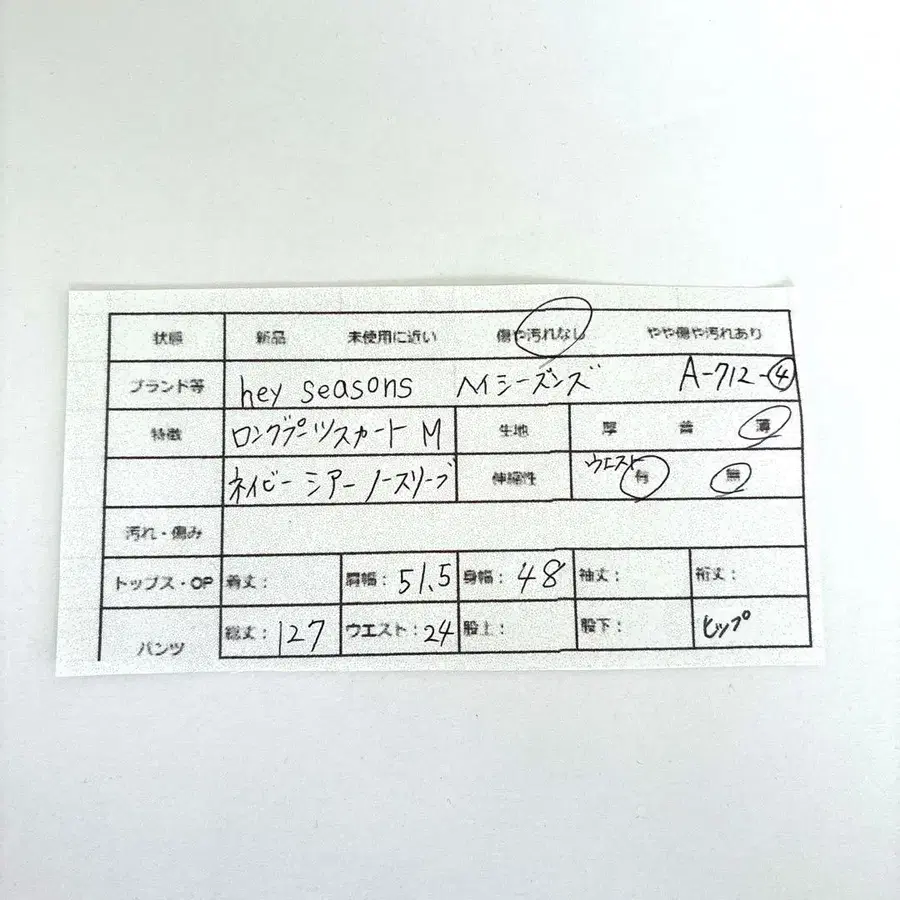 状態 新品 未使用に近い 傷や汚れなし やや傷や汚れあり
ブランド等 hey seasons ヘイシーズンズ A-712-④
特徴 ロングプーツスカート M 生地 厚 普 薄
ネイビー シアー ノースリーブ 伸縮性 ウエスト 有 無
汚れ・傷み
トップス・OP 着丈: 肩幅: 51.5 身幅: 48 袖丈: 裄丈:
パンツ 総丈: 127 ウエスト: 24 股上: 股下: ヒップ